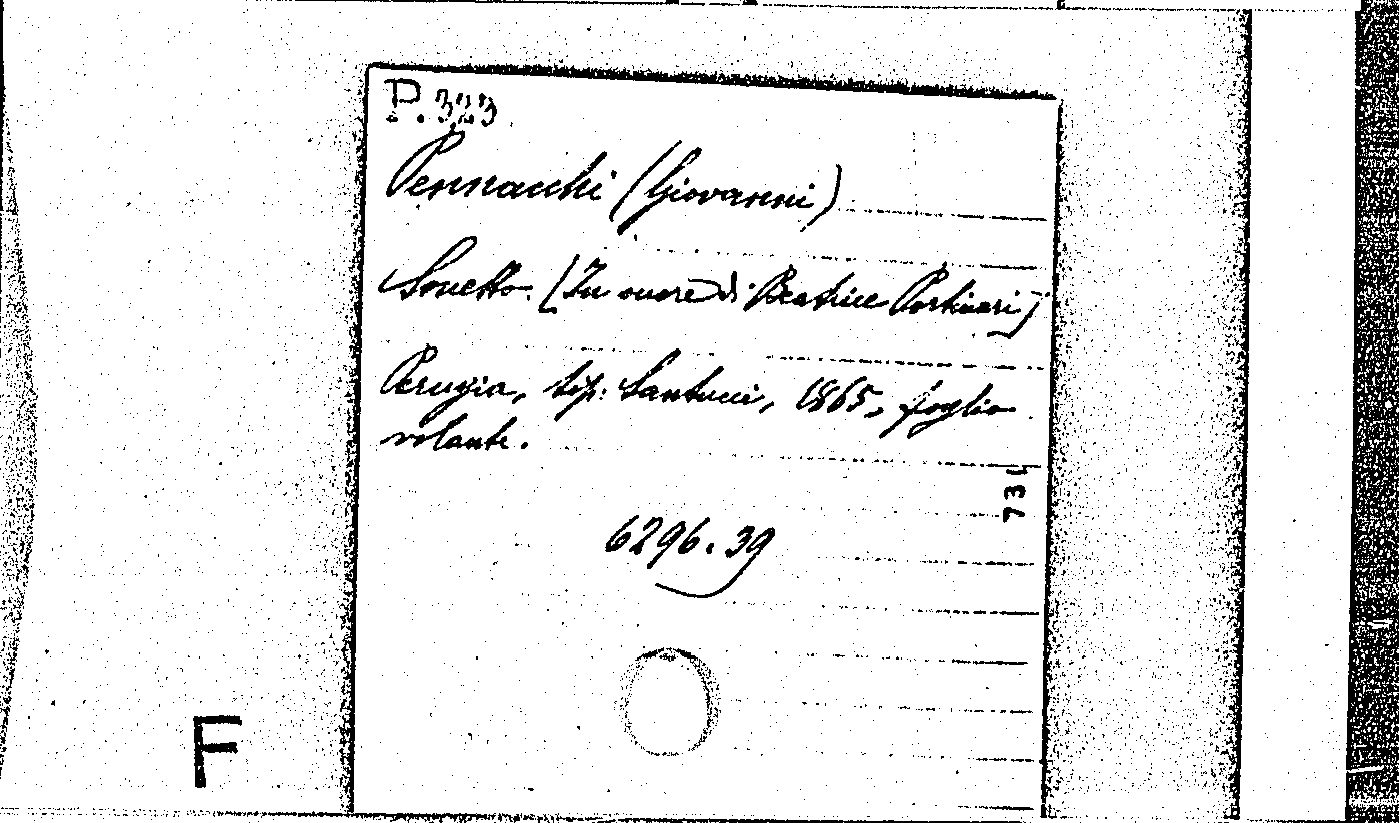 P.323
Pennacchi (Giovanni)
Sonetto. [In onore di Beatrice Portinari]
Perugia, tip. Santucci, 1865, foglio
volante.
6296.39
F